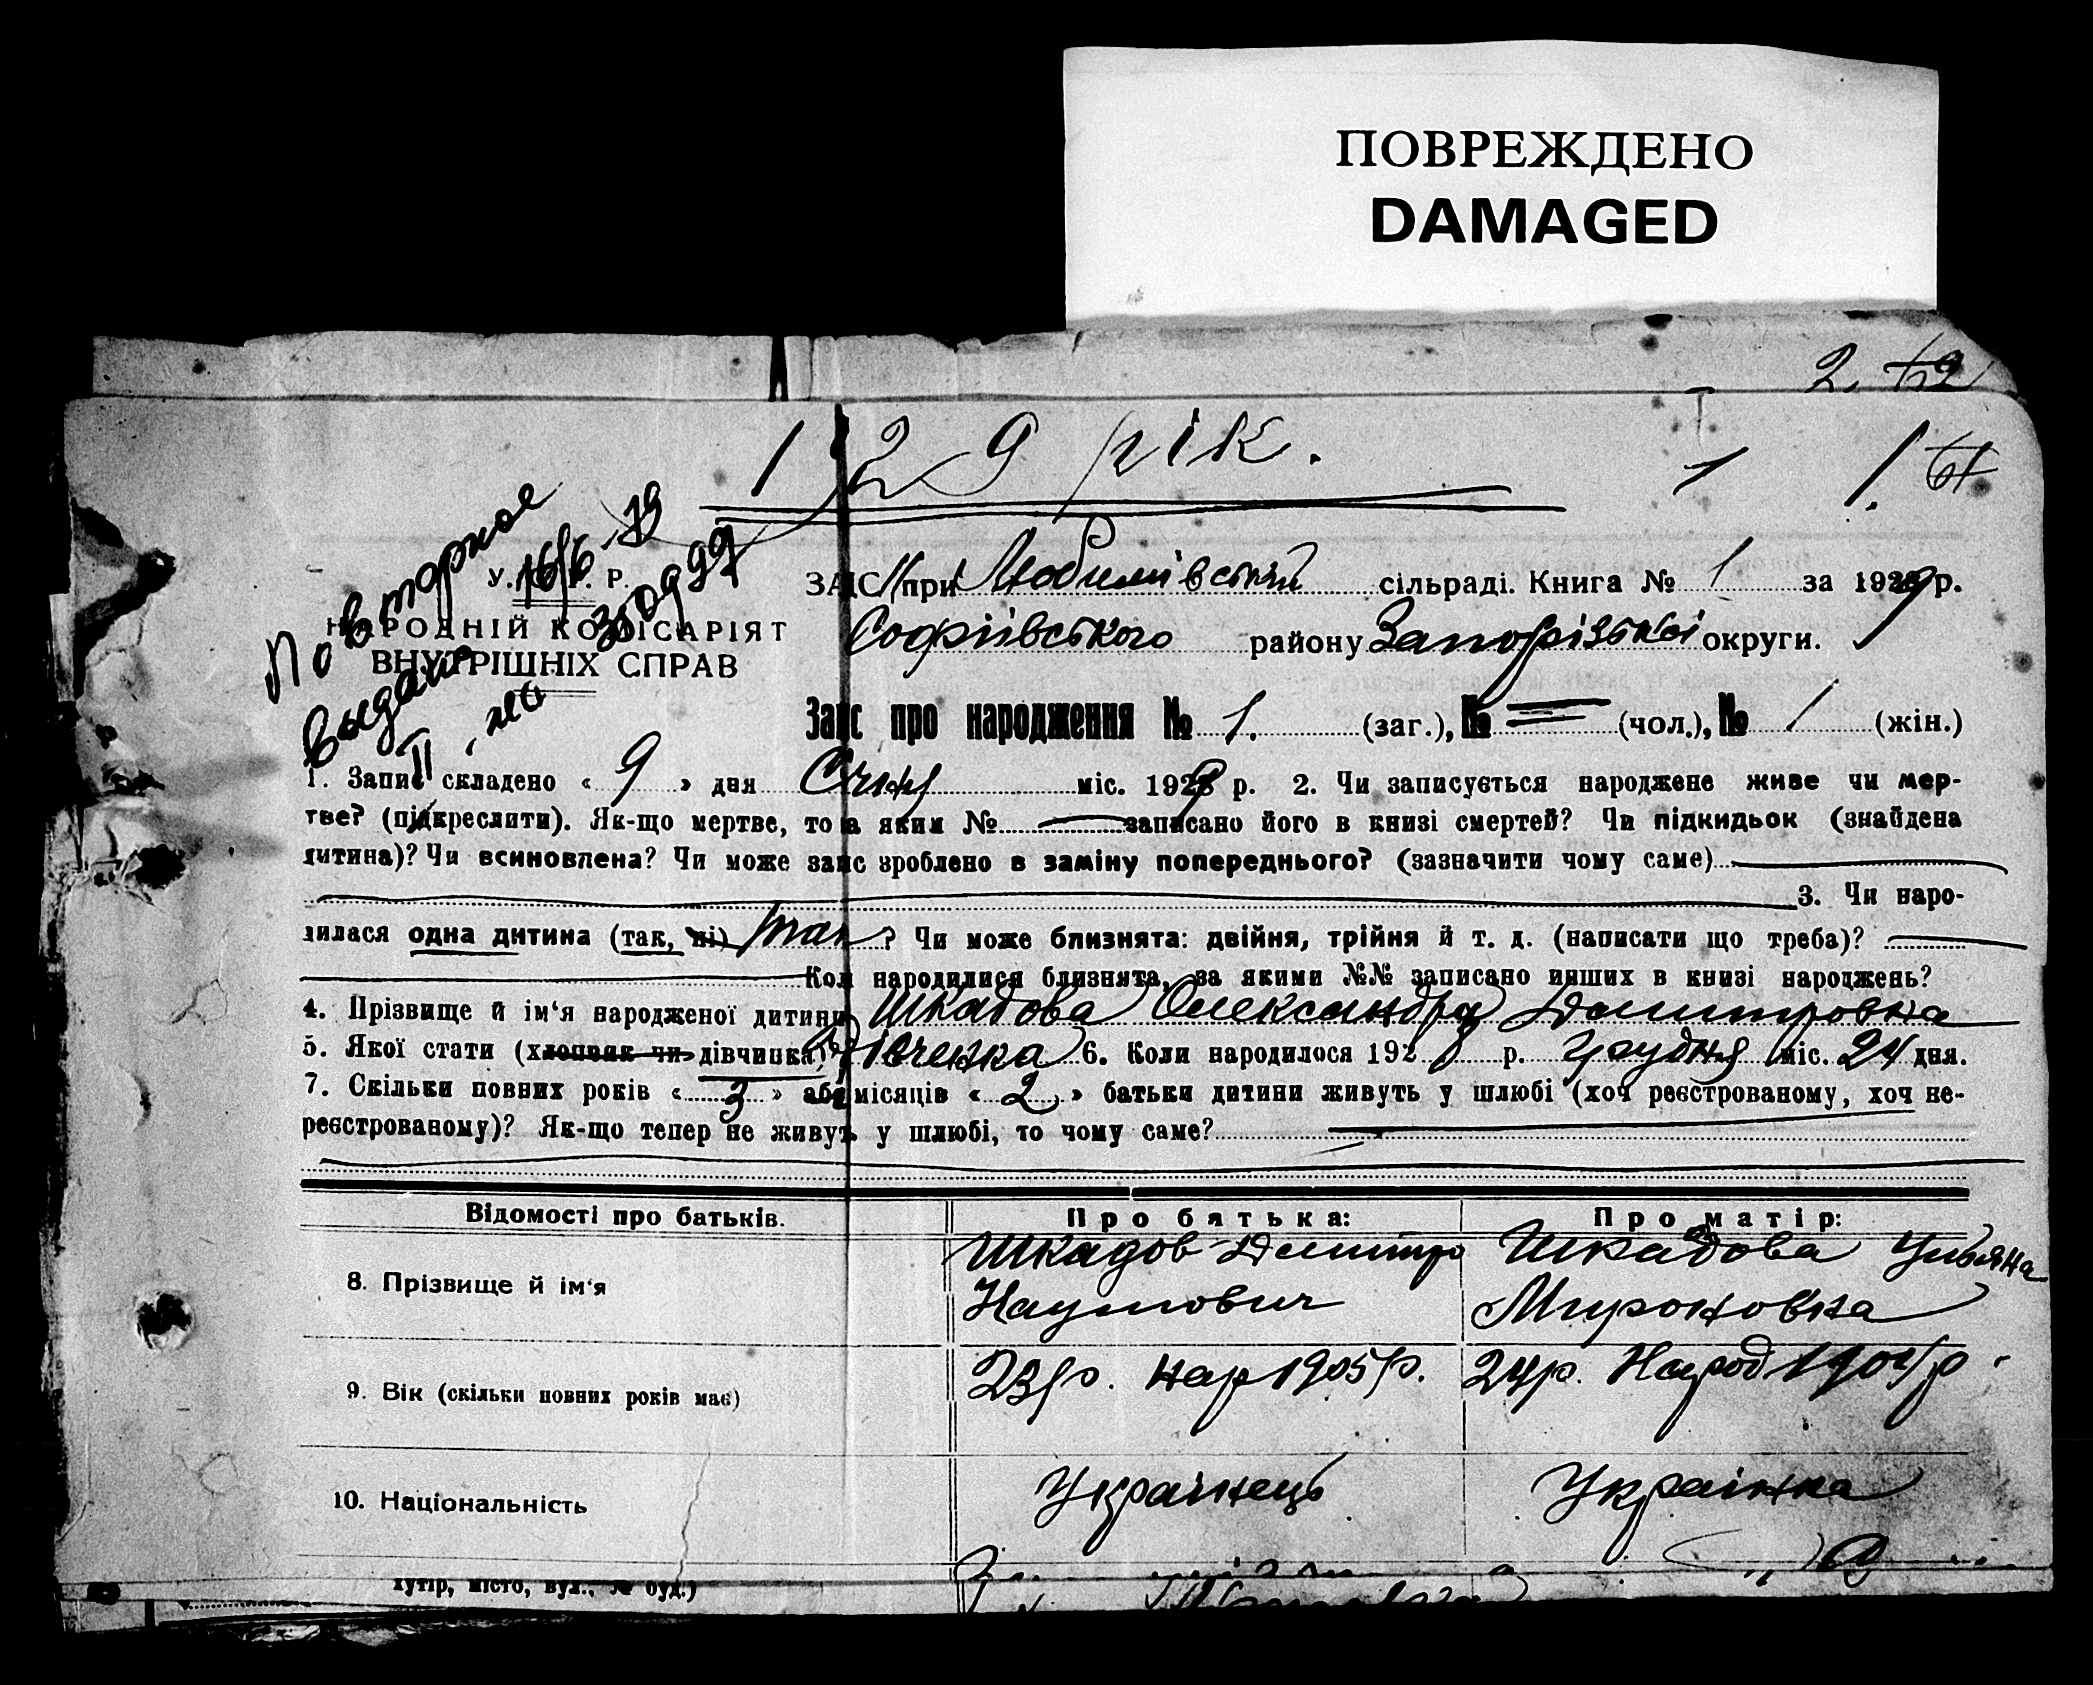 ПОВРЕЖДЕНО
DAMAGED
2.
1929 рік.
1 1.
Повторное 16/6-79
выдано
II
У. С. Р. Р.
НАРОДНІЙ КОМІСАРІЯТ
ВНУТРІШНІХ СПРАВ
ЗАГС при Любимівській сільраді. Книга № 1 за 1929 р.
Софіївського району Запорізької округи.
Запс про народження № 1. (заг.), № = (чол.), № 1 (жін.)
1. Запис складено « 9 » дня Січня міс. 1929 р. 2. Чи записується народжене живе чи мер-
тве? (підкреслити). Як-що мертве, то за яким № записано його в книзі смертей? Чи підкидьок (знайдена
дитина)? Чи всиновлена? Чи може запс зроблено в заміну попереднього? (зазначити чому саме)
3. Чи наро-
дилася одна дитина (так, ні) так ? Чи може близнята: двійня, трійня й т. д. (написати що треба)?
Коли народилися близнята, за якими №№ записано инших в книзі народжень?
4. Прізвище й ім‘я народженої дитини Шкадова Олександра Дмитровна
5. Якої стати (хлопчик чи дівчинка)? Дівченка 6. Коли народилося 192 р. Грудня міс. 24 дня.
7. Скільки повних років « 3 » або місяців « 2 » батьки дитини живуть у шлюбі (хоч реєстрованому, хоч не-
реєстрованому)? Як-що тепер не живуть у шлюбі, то чому саме?
Відомості про батьків. Про батька: Про матір:
8. Прізвище й ім‘я Шкадов Дмитро Наумович Шкадова Ульяна Мироновна
9. Вік (скільки повних років має) 23 р. нар 1905 р. 24 р. Народ 1904 р.
10. Національність Українець Українка
хутір, місто, вул., № буд.)